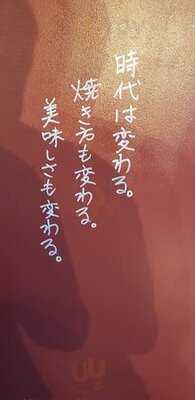 時代は変わる。
焼き方も変わる。
美味しさも変わる。